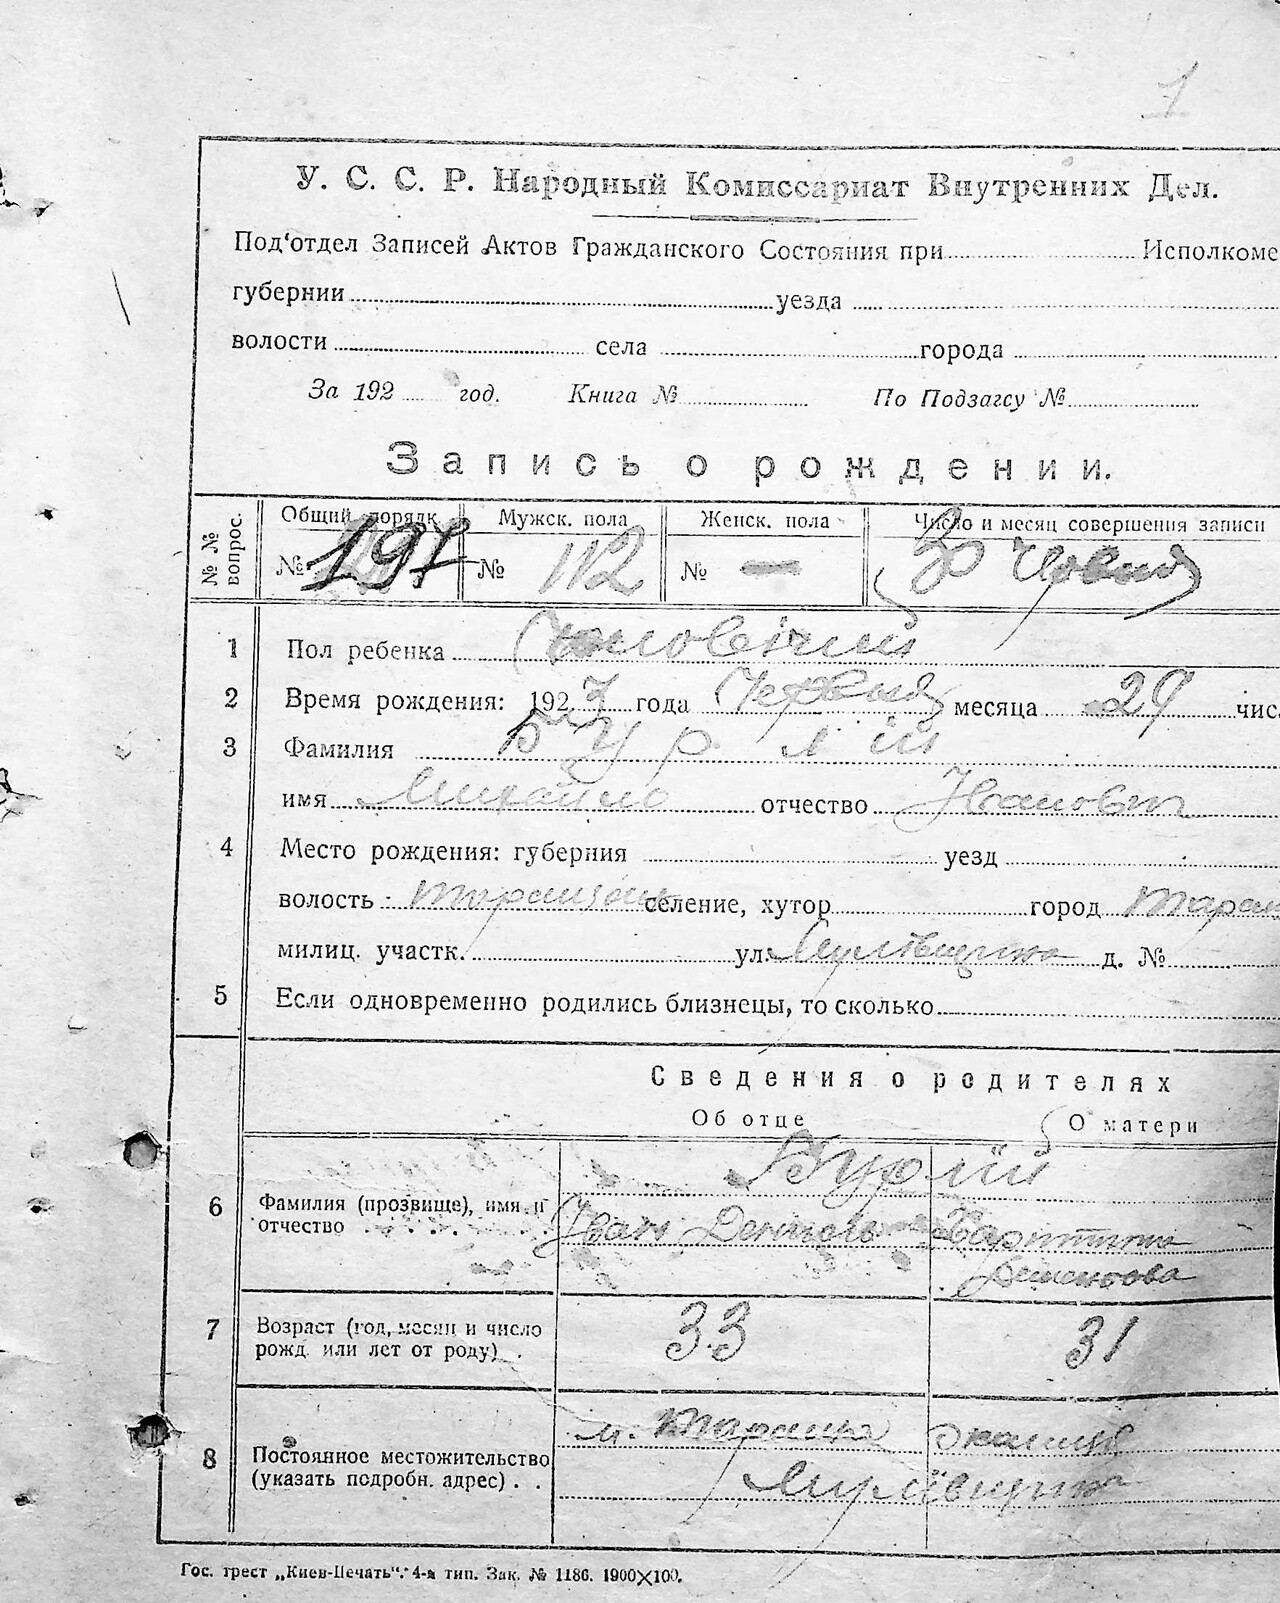 1
У. С. С. Р. Народный Комиссариат Внутренних Дел.
Под‘отдел Записей Актов Гражданского Состояния при Исполкоме
губернии уезда
волости села города
За 192 год. Книга № По Подзагсу №
Запись о рождении.
№ № вопрос. Общий порядк Мужск. пола Женск. пола Число и месяц совершения записи
№ 197 № 112 № — 30 Червня
1 Пол ребенка Чоловічий
2 Время рождения: 1927 года Червня месяца 29 чис
3 Фамилия Бурлій
имя Михайло отчество Іванович
4 Место рождения: губерния уезд
волость селение, хутор город Таращ
милиц. участк. ул. д. №
5 Если одновременно родились близнецы, то сколько
Сведения о родителях
Об отце О матери
Бурлій
6 Фамилия (прозвище), имя и отчество Іван
7 Возраст (год, месяц и число рожд. или лет от роду) . 33 31
м. Тараща
8 Постоянное местожительство (указать подробн. адрес) . .
Гос. трест „Киев-Печать“. 4-я тип. Зак. № 1186. 1900×100.